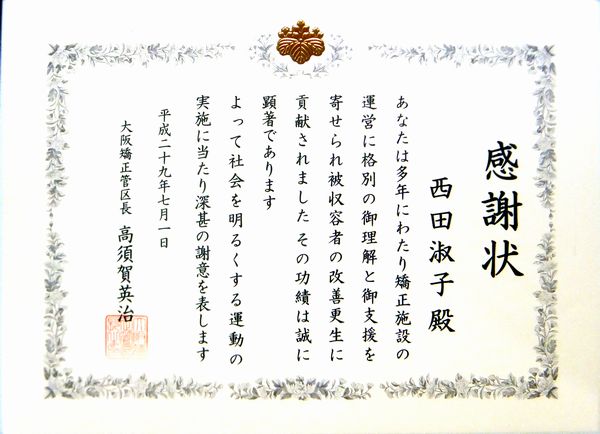 感謝状
西田淑子殿
あなたは多年にわたり矯正施設の
運営に格別の御理解と御支援を
寄せられ被収容者の改善更生に
貢献されました その功績は誠に
顕著であります
よって社会を明るくする運動の
実施に当たり深甚の謝意を表します
平成二十九年七月一日
大阪矯正管区長 高須賀英治